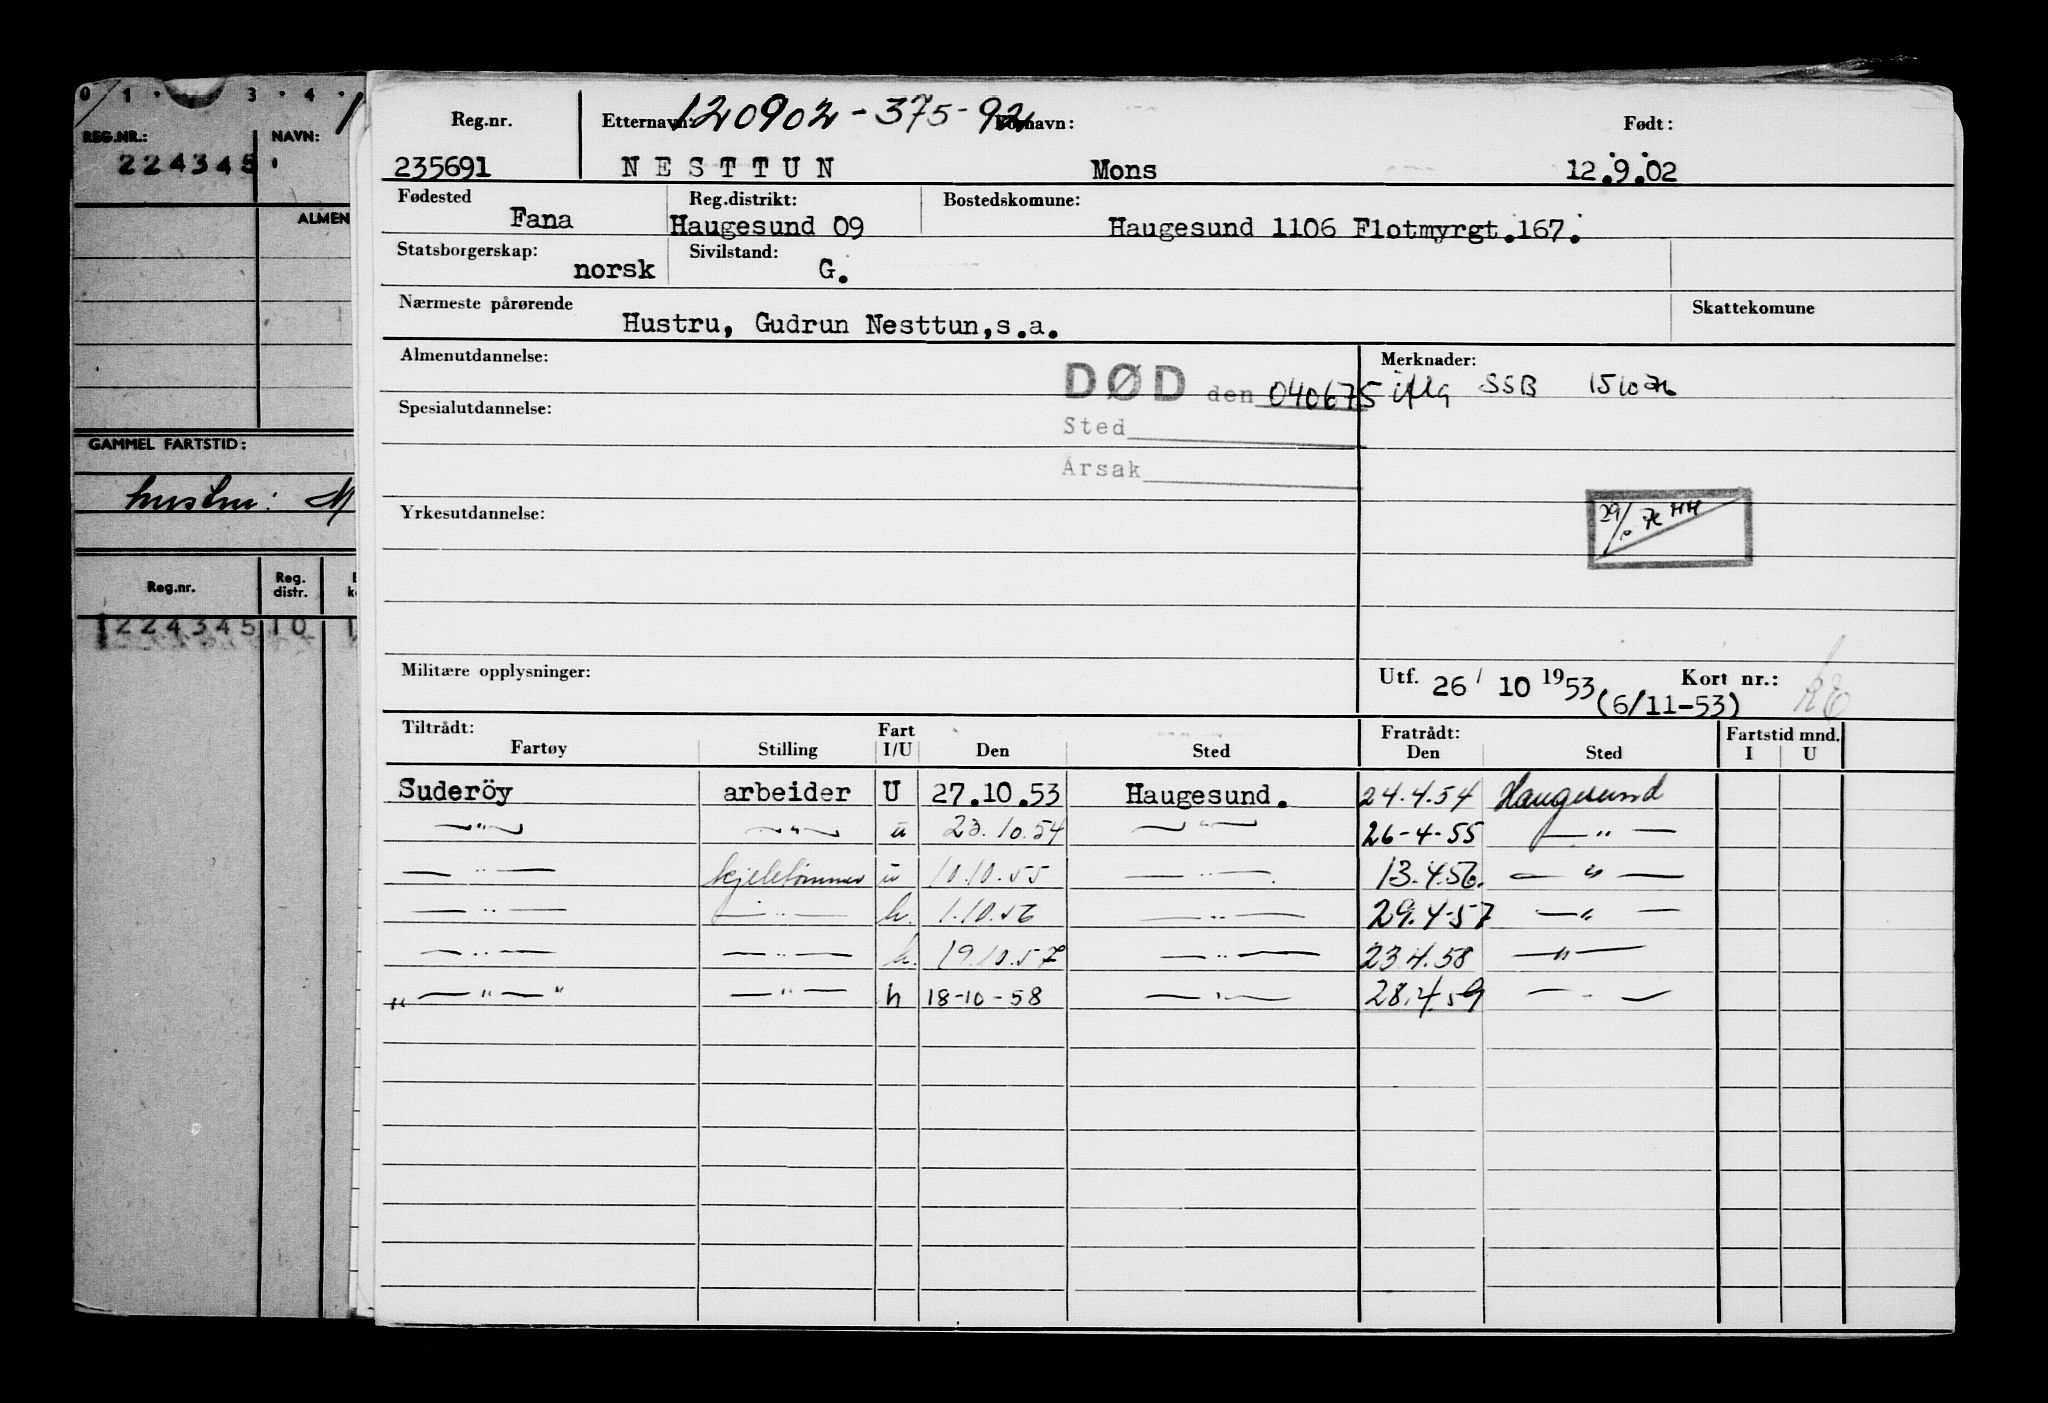 0 1 · 3 · 4 ·
REG.NR.: NAVN:
224345
ALMEN
GAMMEL FARTSTID:
hustru: M
Reg.nr. Reg. distr.
224345 10 1
120902-375-92
Reg.nr. Etternavn: Fornavn: Født:
235691 NESTTUN Mons 12.9.02
Fødested Reg.distrikt: Bostedskomune:
Fana Haugesund 09 Haugesund 1106 Flotmyrgt.167.
Statsborgerskap: Sivilstand:
norsk G.
Nærmeste pårørende Skattekomune
Hustru, Gudrun Nesttun,s.a.
Almenutdannelse: Merknader:
DØD den 040675 iflg SSB
Spesialutdannelse:
Sted
Årsak
Yrkesutdannelse:
29/10 HH
Militære opplysninger: Utf. 26/10 1953 Kort nr.:
(6/11-53)
Tiltrådt: Fart Fratrådt: Fartstid mnd.
Fartøy Stilling I/U Den Sted Den Sted I U
Suderöy arbeider U 27.10.53 Haugesund. 24.4.54 Haugesund
—"— —"— u 23.10.54 —"— 26-4-55 —"—
—"— kjeletømmer u 10.10.55 —"— 13.4.56. —"—
—"— —"— h. 1.10.56 —"— 29.4-57 —"—
—"— —"— h. 19.10.57 —"— 23.4.58 —"—
" —"— " —"— h 18-10-58 —"— 28.4.59 —"—